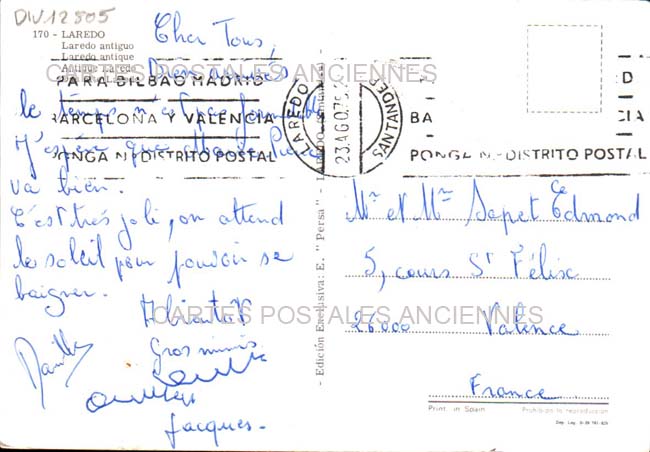 DIV12805
170 - LAREDO
Laredo antiguo
Laredo antique
Antique Laredo
CARTES POSTALES ANCIENNES
PARA BILBAO MADRID
BARCELONA Y VALENCIA
PONGA Nº DISTRITO POSTAL
LAREDO
23 AGO
SANTANDER
D
BA
CIA
PONGA Nº DISTRITO POSTAL
Cher Tous,
Bien arrivés
le temps n'est pas
J'espère que
va bien.
C'est très joli, on attend
le soleil pour pouvoir se
baigner.
A bientôt
Gros mimis
Jacques.
- Edición Exclusiva: E. " Persa " - LAREDO
Mr et Mme Sapet Edmond
5, cours St Félix
26000 Valence
France
CARTES POSTALES ANCIENNES
Print. in Spain
Prohibida la reproducción